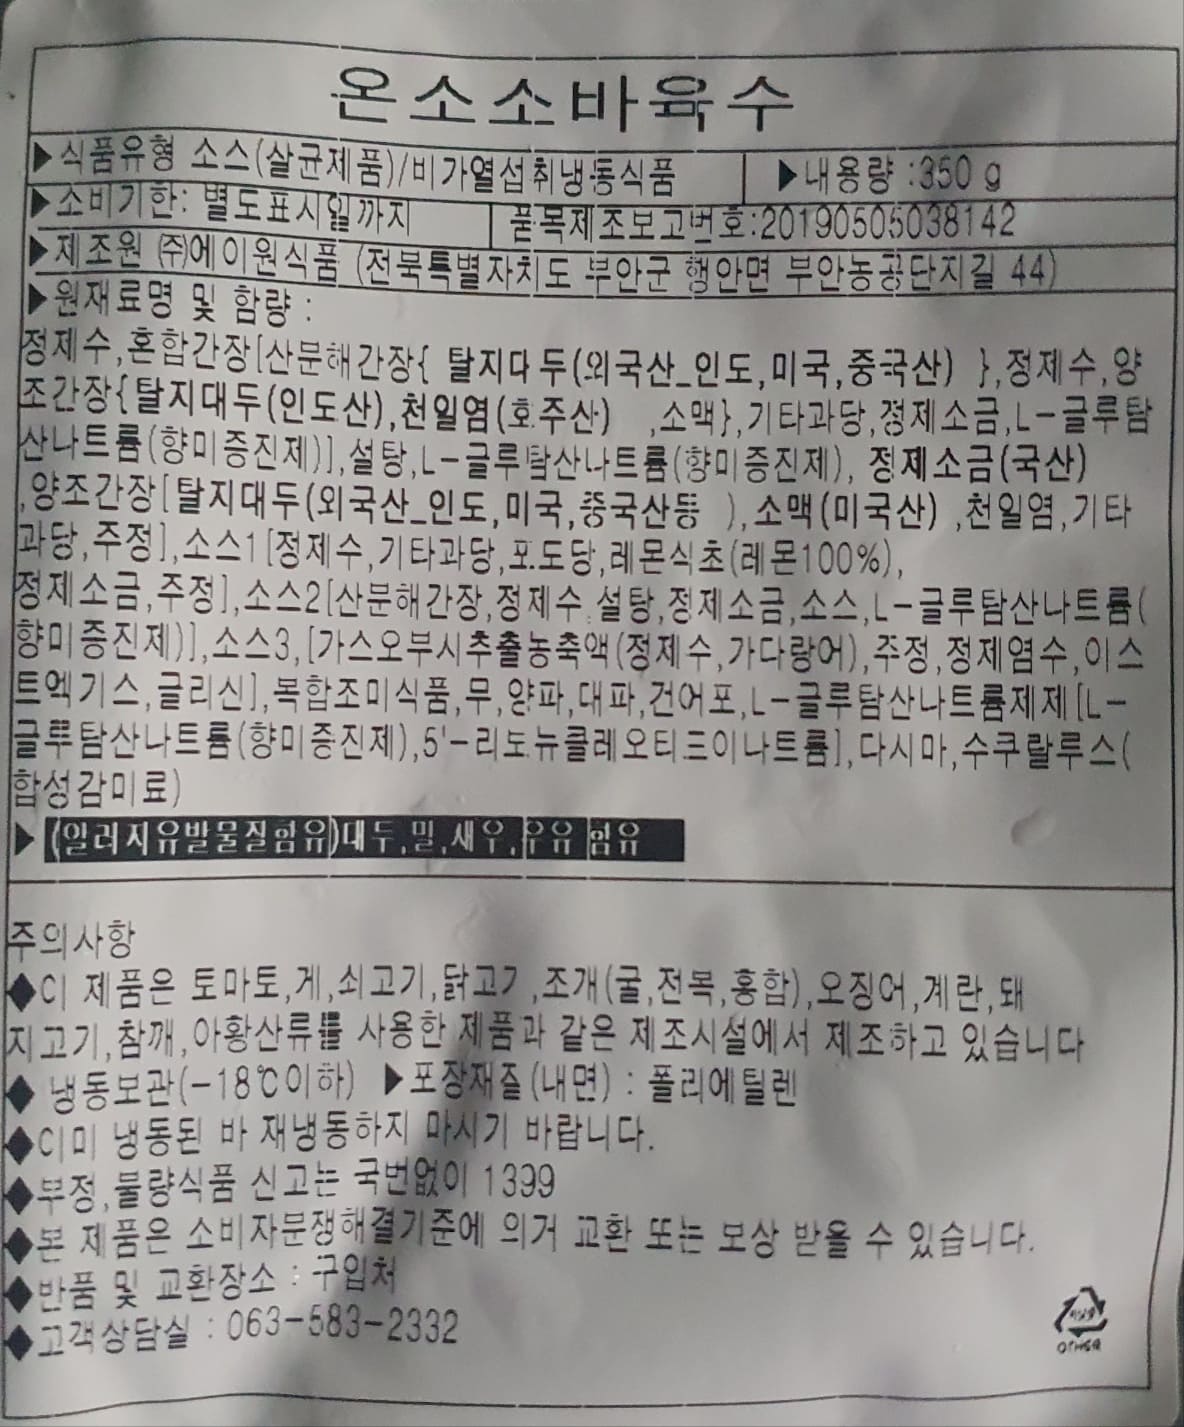 온소소바육수
▶식품유형 소스(살균제품)/비가열섭취냉동식품 ▶내용량 :350 g
▶소비기한: 별도표시일까지 품목제조보고번호:20190505038142
▶제조원 ㈜에이원식품 (전북특별자치도 부안군 행안면 부안농공단지길 44)
▶원재료명 및 함량 :
정제수,혼합간장[산분해간장{ 탈지대두(외국산_인도,미국,중국산) },정제수,양
조간장{탈지대두(인도산),천일염(호주산) ,소맥},기타과당,정제소금,L-글루탐
산나트륨(향미증진제)],설탕,L-글루탐산나트륨(향미증진제), 정제소금(국산)
,양조간장[탈지대두(외국산_인도,미국,중국산등 ),소맥(미국산) ,천일염,기타
과당,주정],소스1[정제수,기타과당,포도당,레몬식초(레몬100%),
정제소금,주정],소스2[산분해간장,정제수,설탕,정제소금,소스,L-글루탐산나트륨(
향미증진제)],소스3,[가스오부시추출농축액(정제수,가다랑어),주정,정제염수,이스
트엑기스,글리신],복합조미식품,무,양파,대파,건어포,L-글루탐산나트륨제제[L-
글루탐산나트륨(향미증진제),5'-리보뉴클레오티드이나트륨],다시마,수쿠랄루스(
합성감미료)
▶ (알러지유발물질함유)대두,밀,새우,우유 함유
주의사항
◆이 제품은 토마토,게,쇠고기,닭고기,조개(굴,전복,홍합),오징어,계란,돼
지고기,참깨,아황산류를 사용한 제품과 같은 제조시설에서 제조하고 있습니다
◆ 냉동보관(-18℃이하) ▶포장재질(내면) : 폴리에틸렌
◆이미 냉동된 바 재냉동하지 마시기 바랍니다.
◆부정,불량식품 신고는 국번없이 1399
◆본 제품은 소비자분쟁해결기준에 의거 교환 또는 보상 받을 수 있습니다.
◆반품 및 교환장소 : 구입처
◆고객상담실 : 063-583-2332
OTHER